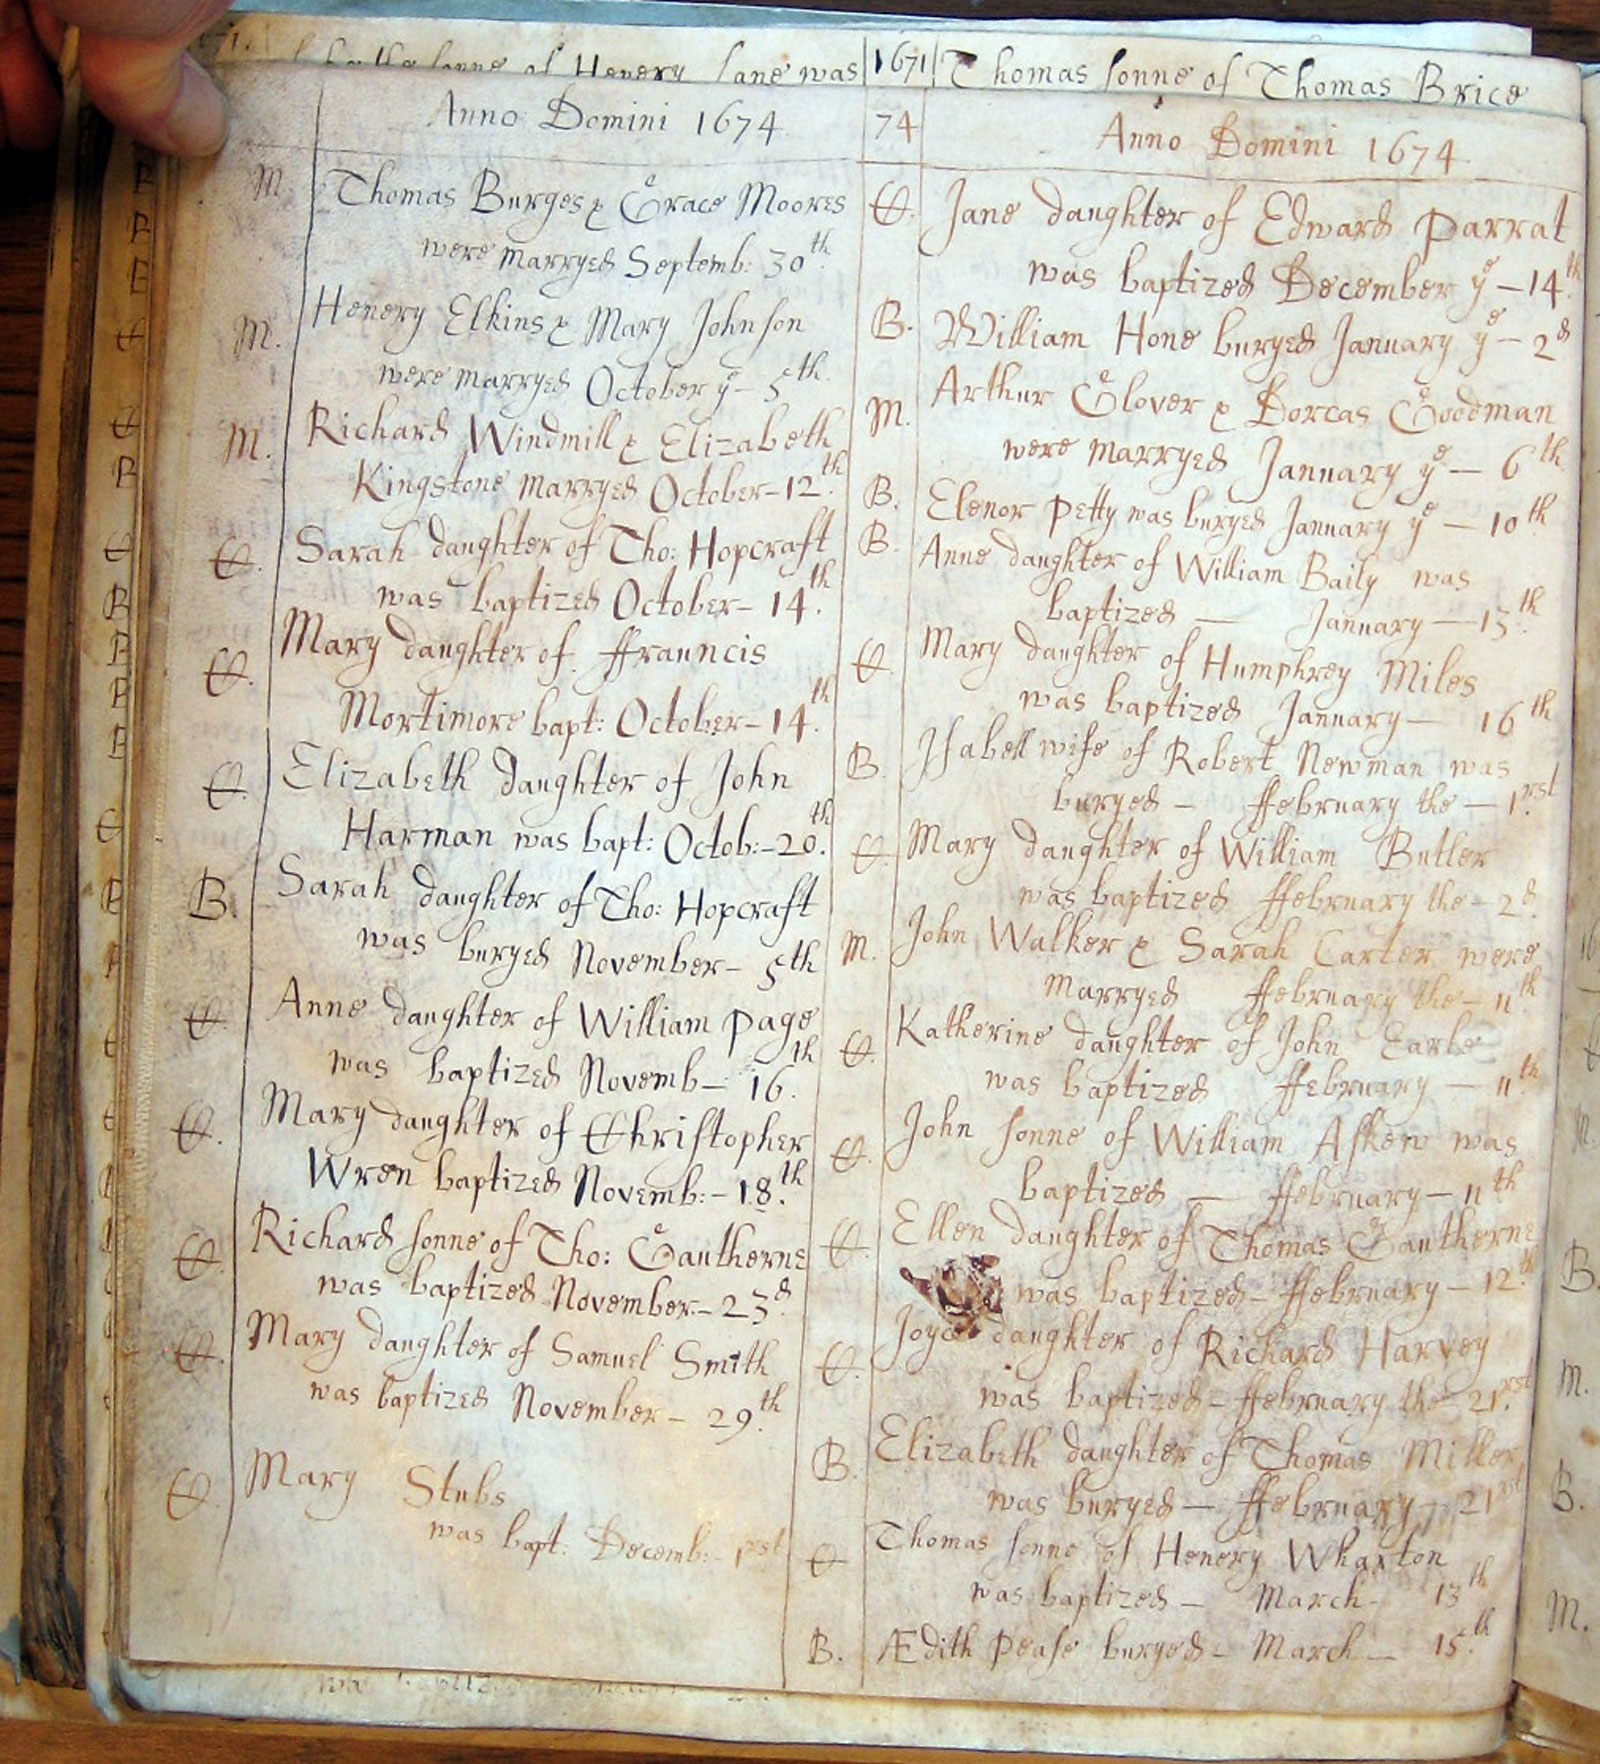 sonne of Henery Lane was
1671
Thomas sonne of Thomas Brice
Anno Domini 1674
M. Thomas Burges & Grace Moores
were marryed Septemb: 30th.
M. Henery Elkins & Mary Johnson
were marryed October ye – 5th.
M. Richard Windmill & Elizabeth
Kingstone marryed October – 12th.
C. Sarah daughter of Tho: Hopcraft
was baptized October – 14th.
C. Mary daughter of ffrauncis
Mortimore bapt: October – 14th.
C. Elizabeth daughter of John
Harman was bapt: Octob: – 20th.
B. Sarah daughter of Tho: Hopcraft
was buryed November – 5th
C. Anne daughter of William Page
was baptized Novemb – 16th.
C. Mary daughter of Christopher
Wren baptized Novemb: – 18th.
C. Richard sonne of Tho: Gautherne
was baptized November – 23d.
C. Mary daughter of Samuel Smith
was baptized November – 29th.
C. Mary Stubs
was bapt: Decemb: – 1rst
74
Anno Domini 1674.
C. Jane daughter of Edward Parrat
was baptized December ye – 14th.
B. William Hone buryed January ye – 2d
M. Arthur Glover & Dorcas Goodman
were marryed January ye – 6th
B. Elenor Petty was buryed January ye – 10th
B. Anne daughter of William Baily was
baptized — January — 13th.
C. Mary daughter of Humphrey Miles
was baptized January — 16th
B. Isabell wife of Robert Newman was
buryed – ffebruary the — 1rst.
C. Mary daughter of William Butler
was baptized ffebruary the – 2d.
M. John Walker & Sarah Carter were
marryed ffebruary the – 11th
C. Katherine daughter of John Earle
was baptized ffebruary — 11th
C. John sonne of William Askew was
baptized — ffebruary – 11th
C. Ellen daughter of Thomas Gautherne
was baptized – ffebruary – 12th.
C. Joyce daughter of Richard Harvey
was baptized – ffebruary the 21rst.
B. Elizabeth daughter of Thomas Miller
was buryed — ffebruary 21rst
C. Thomas sonne of Henery Wharton
was baptized – March – 13th
B. Ædith Pease buryed – March — 15th.